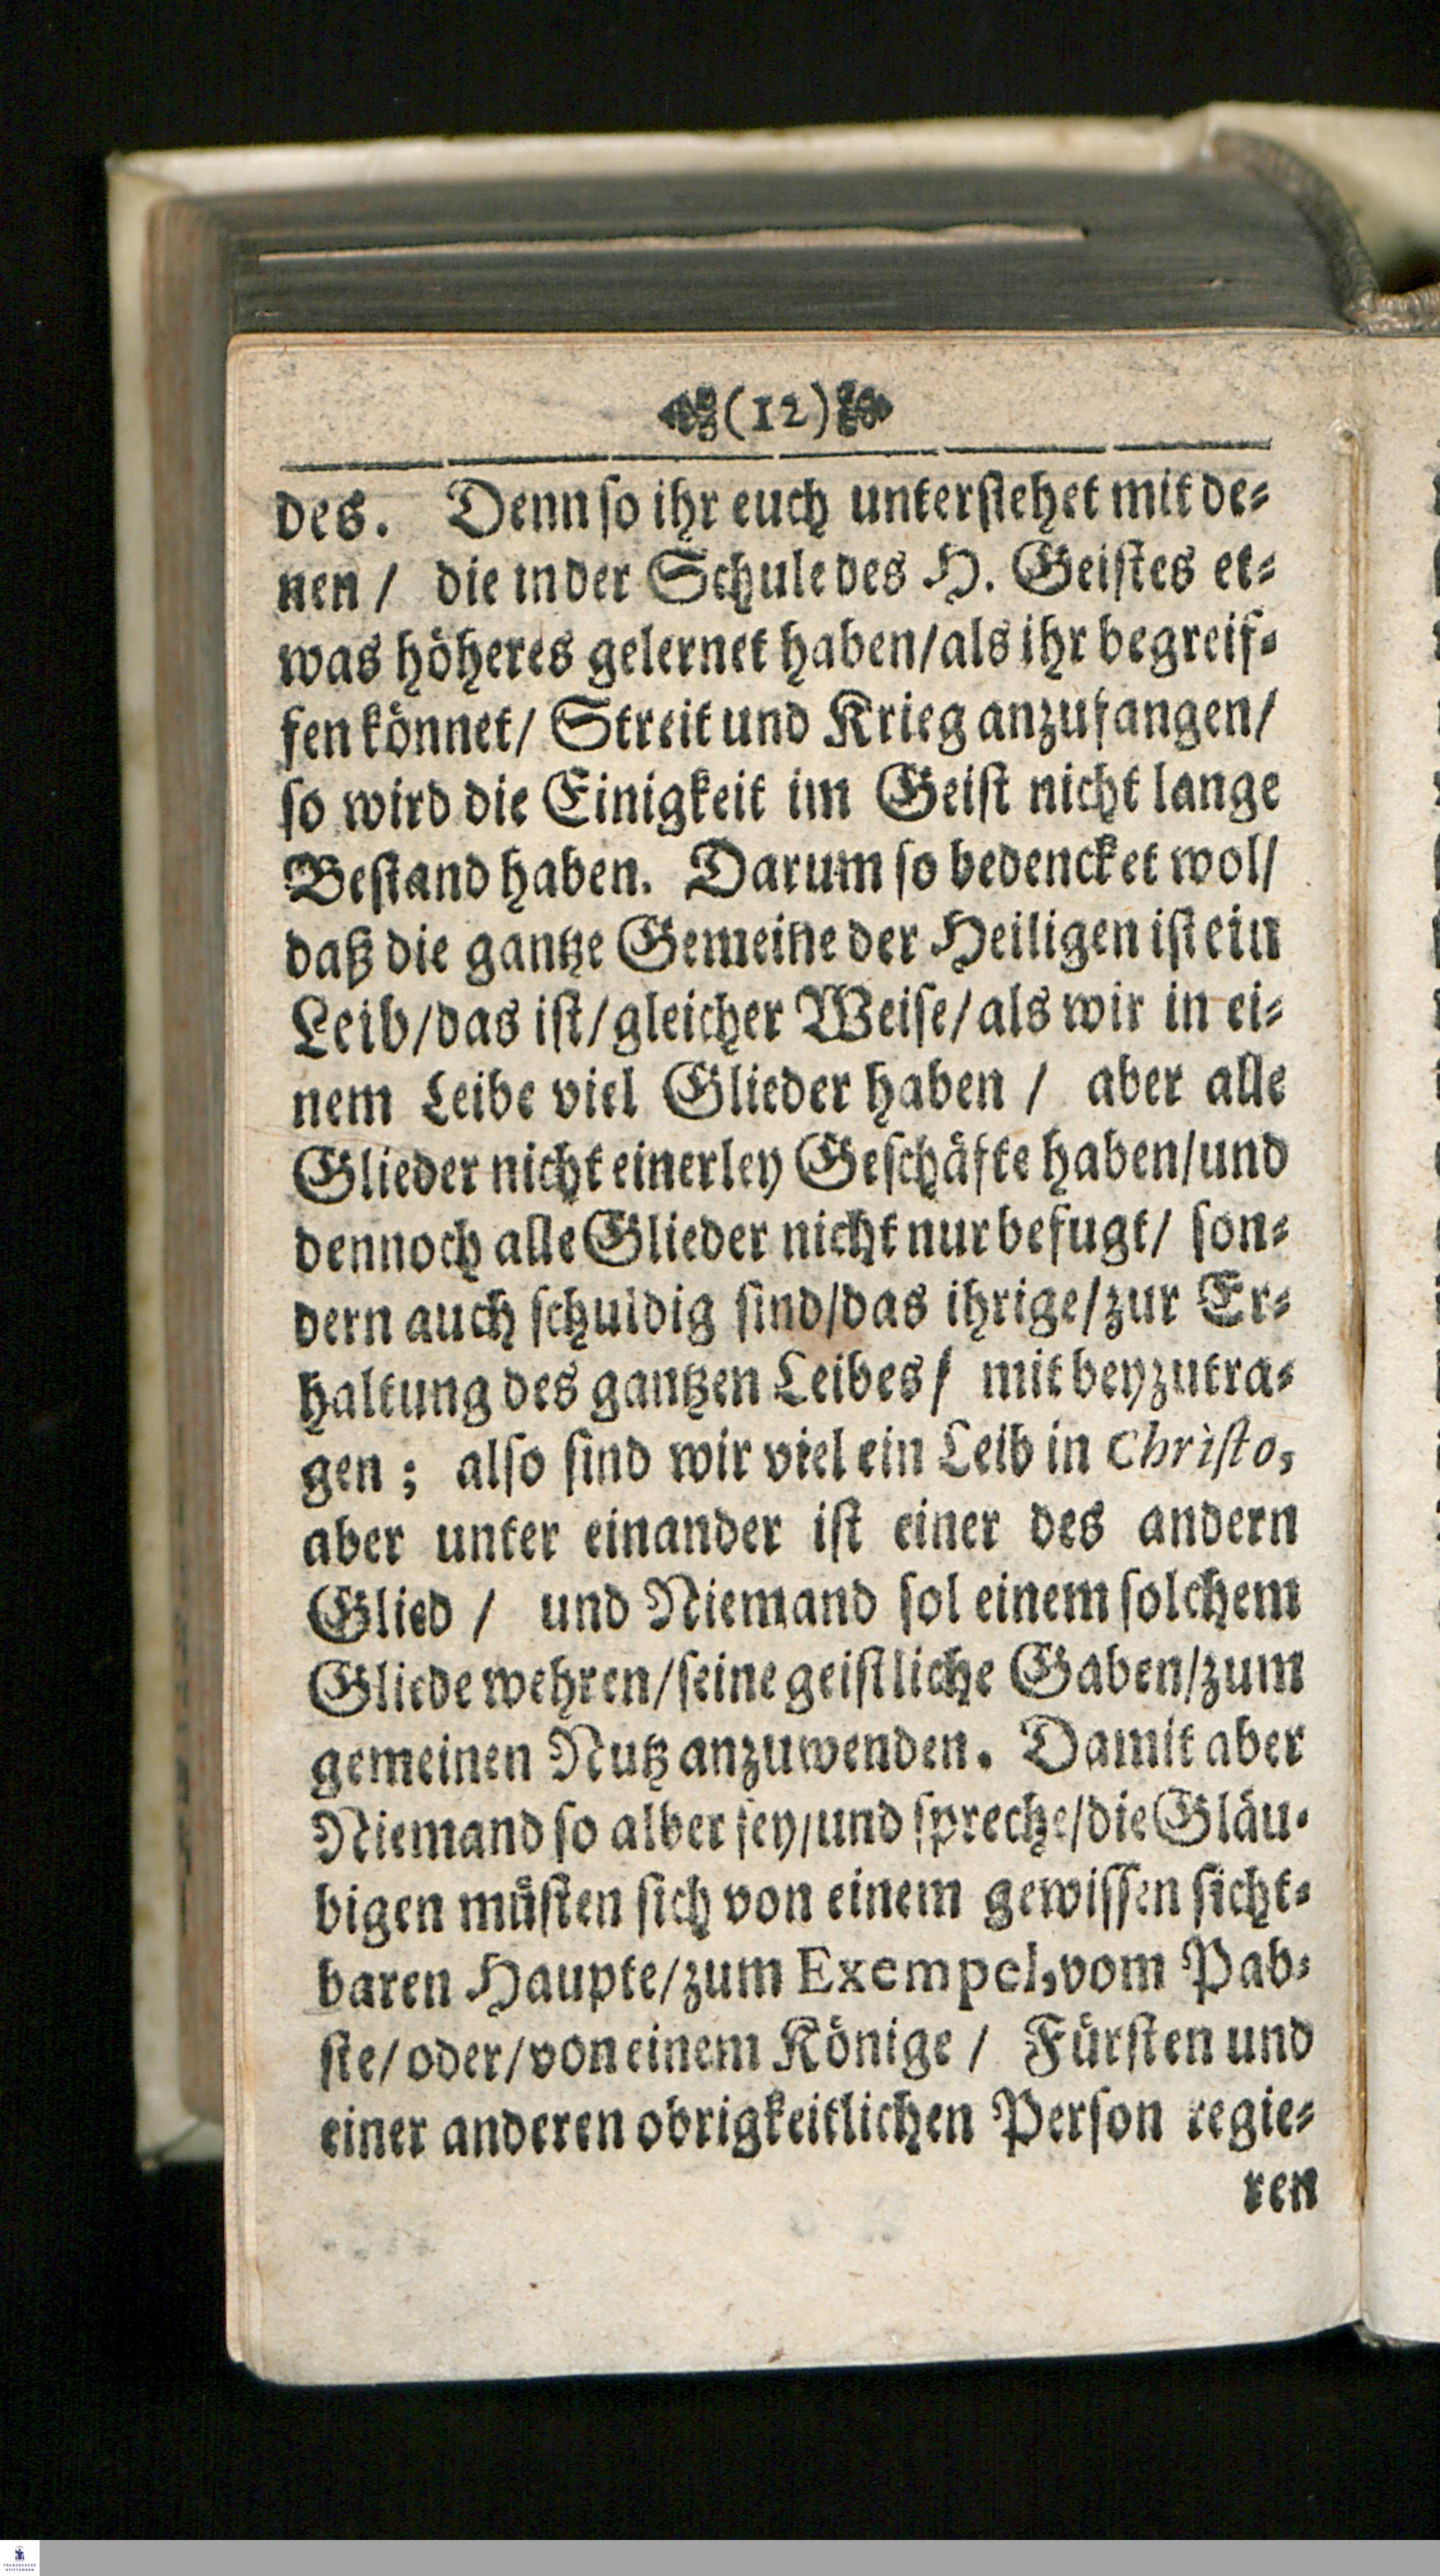 (12)
des. Denn so ihr euch unterstehet mit de-
nen / die in der Schule des H. Geistes et-
was höheres gelernet haben/als ihr begreif-
fen könnet/ Streit und Krieg anzufangen/
so wird die Einigkeit im Geist nicht lange
Bestand haben. Darum so bedencket wol/
daß die gantze Gemeine der Heiligen ist ein
Leib/das ist/gleicher Weise/als wir in ei-
nem Leibe viel Glieder haben / aber alle
Glieder nicht einerley Geschäfte haben/und
dennoch alle Glieder nicht nur befugt/ son-
dern auch schuldig sind/das ihrige/zur Er-
haltung des gantzen Leibes/ mit beyzutra-
gen ; also sind wir viel ein Leib in Christo,
aber unter einander ist einer des andern
Glied / und Niemand sol einem solchem
Gliede wehren/seine geistliche Gaben/zum
gemeinen Nutz anzuwenden. Damit aber
Niemand so alber sey/und spreche/die Gläu-
bigen müsten sich von einem gewissen sicht-
baren Haupte/zum Exempel, vom Pab-
ste/oder/von einem Könige / Fürsten und
einer anderen obrigkeitlichen Person regie-
ren
FRANCKESCHE
STIFTUNGEN